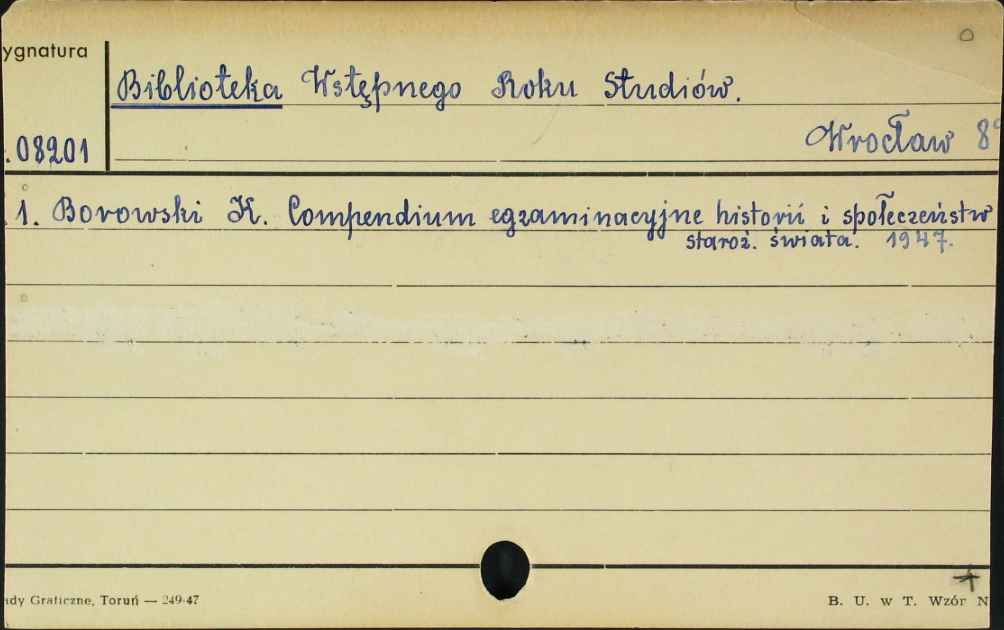 ygnatura
Biblioteka Wstępnego Roku Studiów.
Wrocław 8°
.08201
1. Borowski K. Compendium egzaminacyjne historii i społeczeństw
staroż. świata. 1947.
ady Graficzne, Toruń — 249-47
B. U. w T. Wzór N